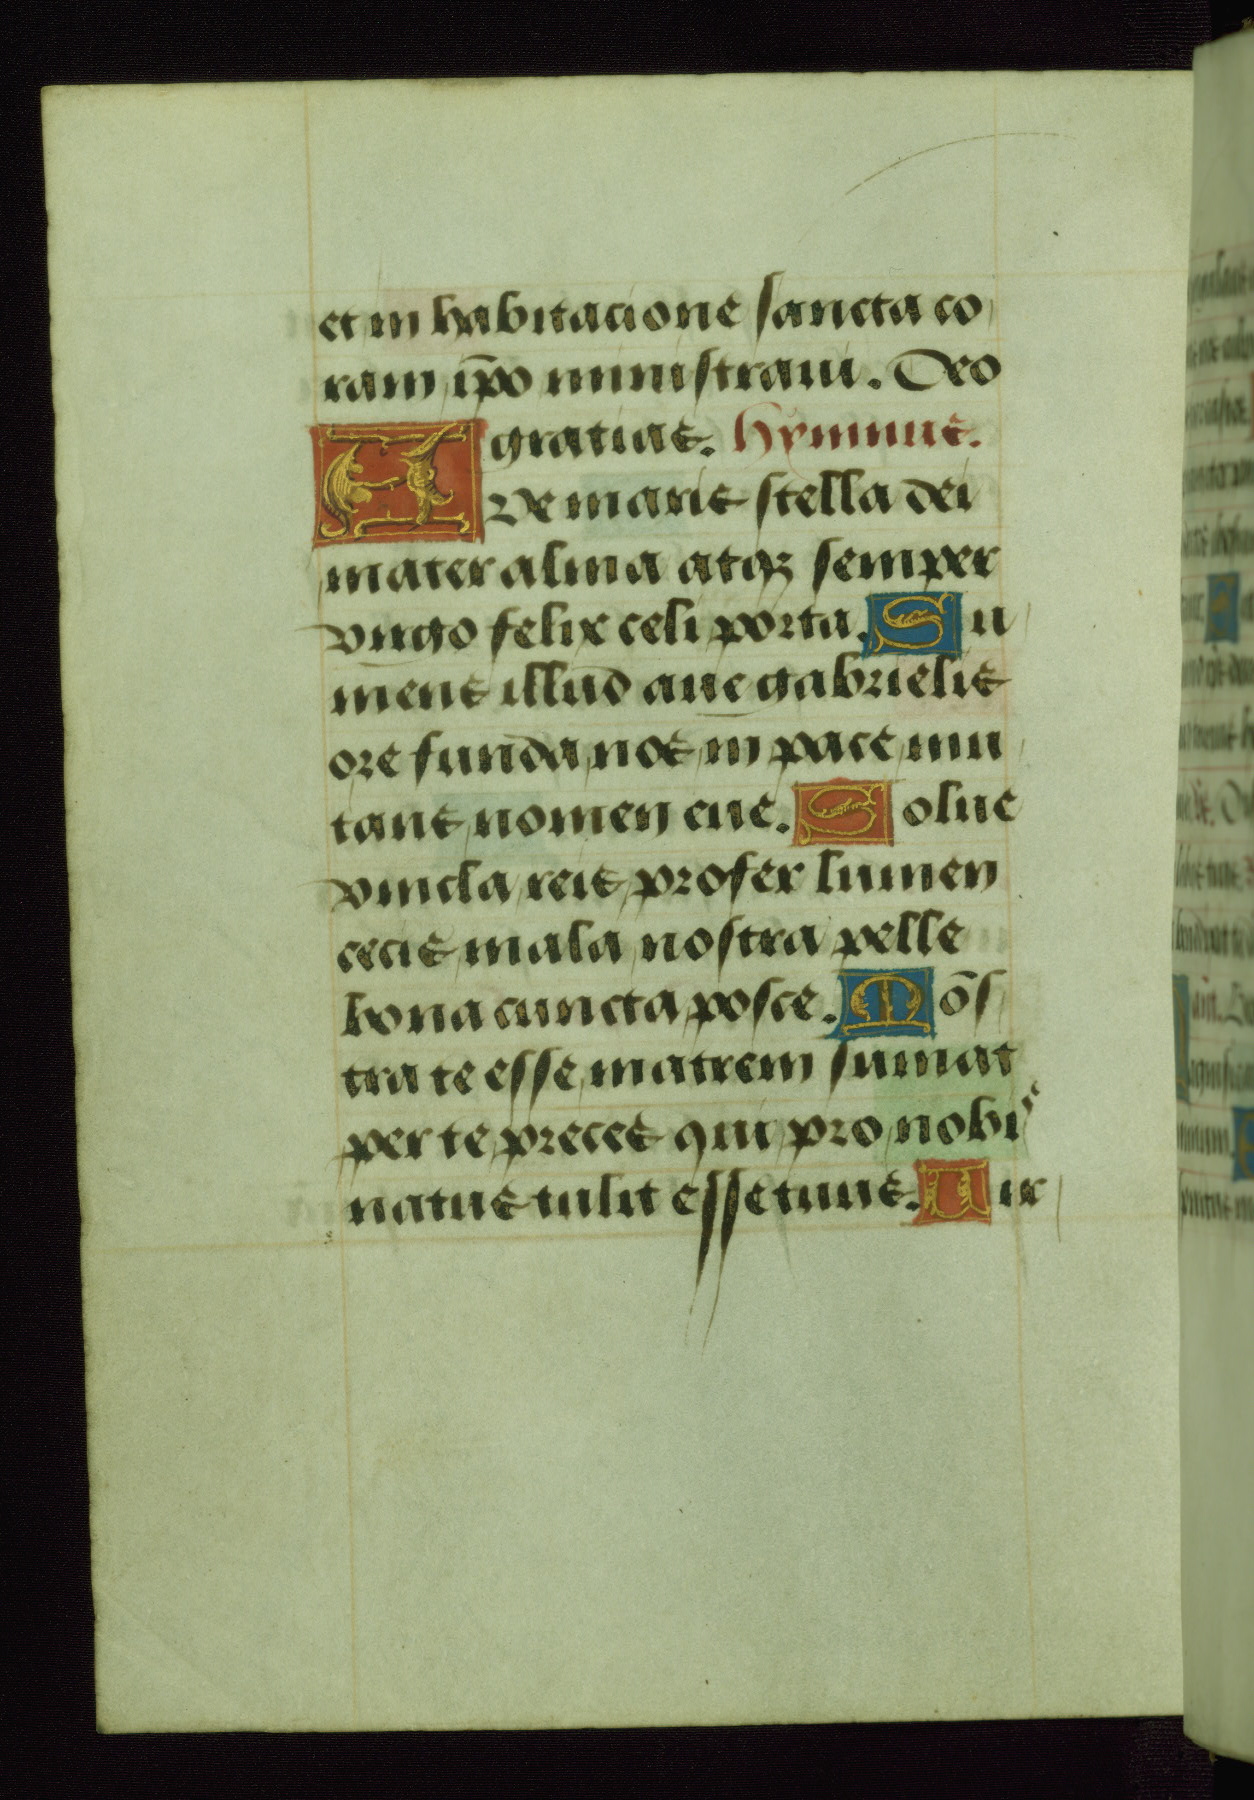 et in habitacione sancta co
ram ip̄o ministraui. Deo
gratias. Hymnus.
Aue maris stella dei
mater alma atqꝫ semper
virgo felix celi porta. Su
mens illud aue gabrielis
ore funda nos in pace mu
tans nomen eue. Solue
vincla reis profer lumen
cecis mala nostra pelle
bona cuncta posce. Mōs
tra te esse matrem sumat
per te preces qui pro nobis
natus tulit esse tuus. Vir